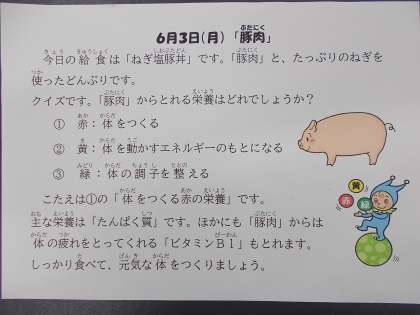 6月3日(月)「豚肉」
今日の給食は「ねぎ塩豚丼」です。「豚肉」と、たっぷりのねぎを
使ったどんぶりです。
クイズです。「豚肉」からとれる栄養はどれでしょうか？
① 赤：体をつくる
② 黄：体を動かすエネルギーのもとになる
③ 緑：体の調子を整える
こたえは①の「体をつくる赤の栄養」です。
主な栄養は「たんぱく質」です。ほかにも「豚肉」からは
体の疲れをとってくれる「ビタミンB1」もとれます。
しっかり食べて、元気な体をつくりましょう。
黄
赤
緑